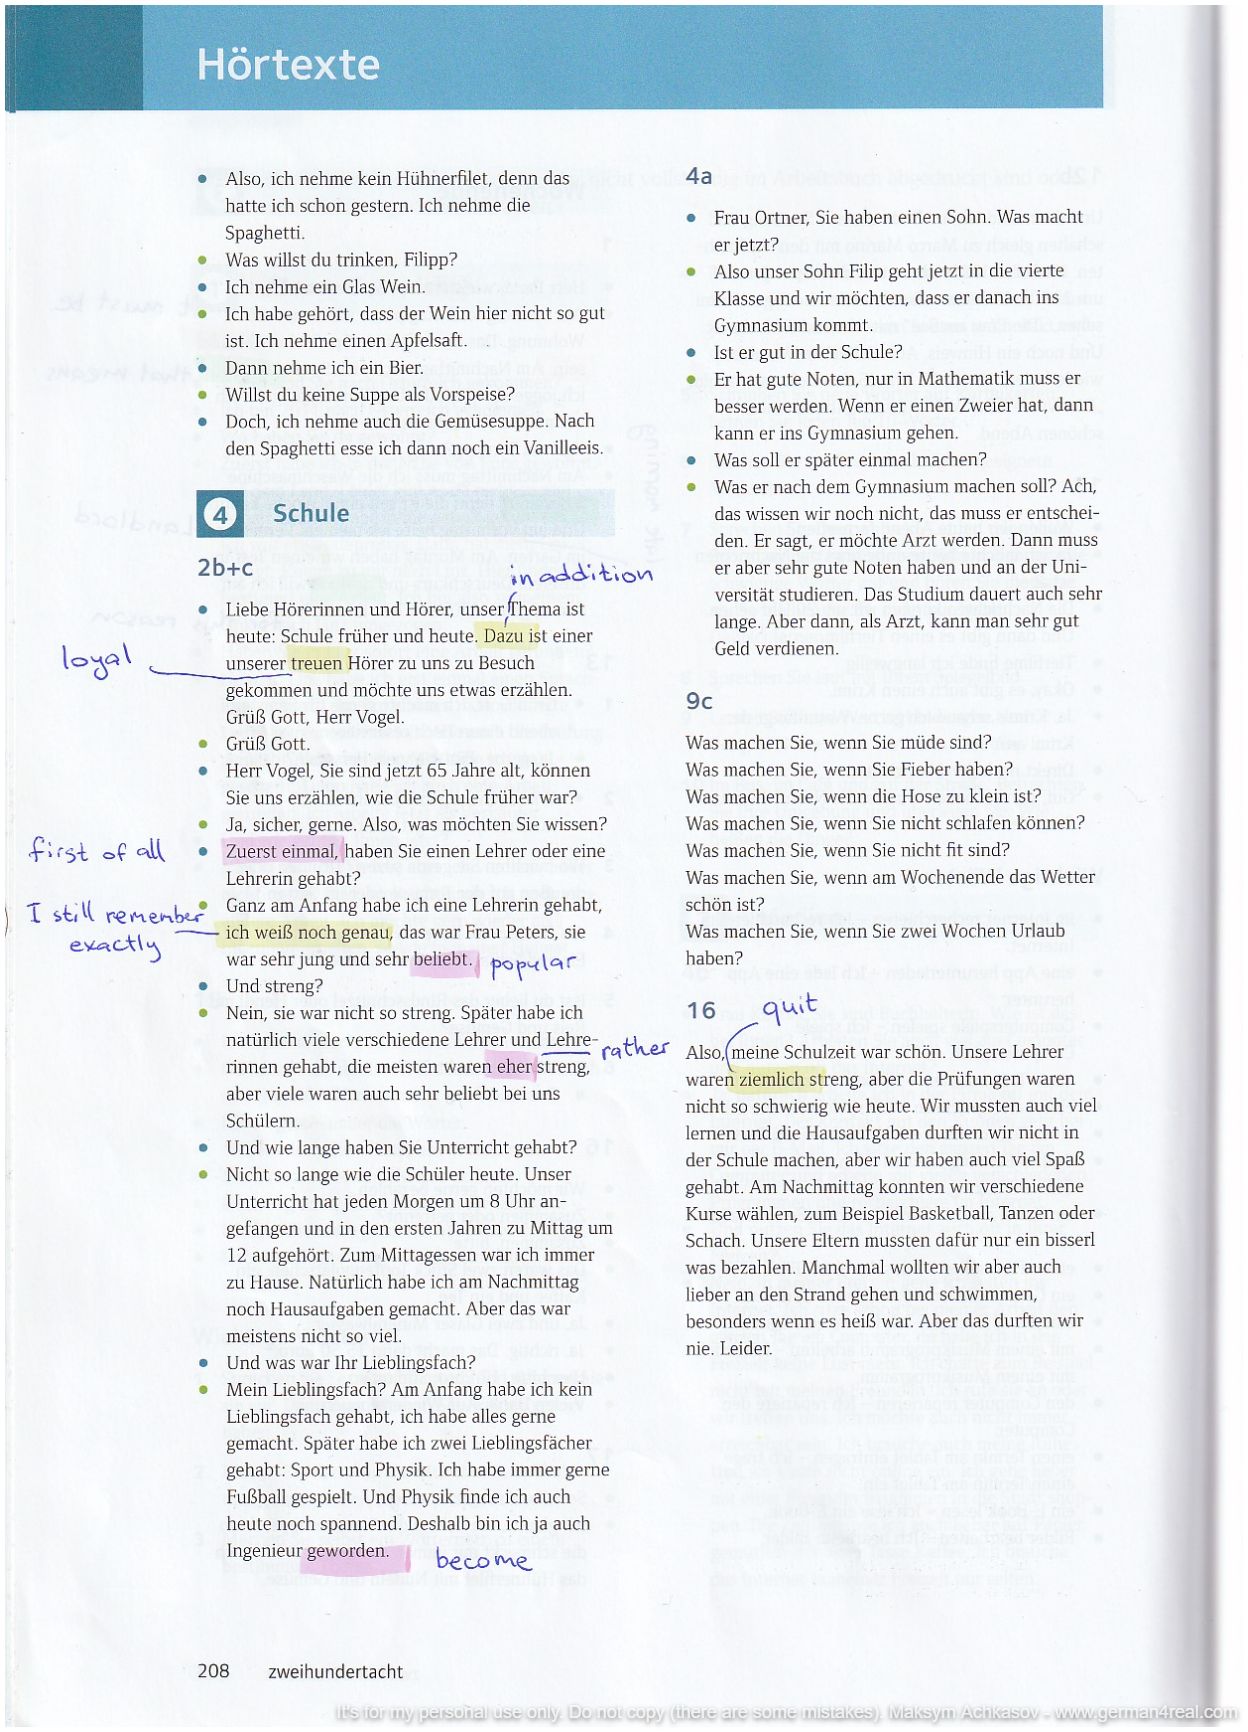 Hörtexte
Also, ich nehme kein Hühnerfilet, denn das
hatte ich schon gestern. Ich nehme die
Spaghetti.
Was willst du trinken, Filipp?
Ich nehme ein Glas Wein.
Ich habe gehört, dass der Wein hier nicht so gut
ist. Ich nehme einen Apfelsaft.
Dann nehme ich ein Bier.
Willst du keine Suppe als Vorspeise?
Doch, ich nehme auch die Gemüsesuppe. Nach
den Spaghetti esse ich dann noch ein Vanilleeis.
4 Schule
2b+c
in addition
Liebe Hörerinnen und Hörer, unser Thema ist
heute: Schule früher und heute. Dazu ist einer
loyal
unserer treuen Hörer zu uns zu Besuch
gekommen und möchte uns etwas erzählen.
Grüß Gott, Herr Vogel.
Grüß Gott.
Herr Vogel, Sie sind jetzt 65 Jahre alt, können
Sie uns erzählen, wie die Schule früher war?
Ja, sicher, gerne. Also, was möchten Sie wissen?
first of all
Zuerst einmal, haben Sie einen Lehrer oder eine
Lehrerin gehabt?
Ganz am Anfang habe ich eine Lehrerin gehabt,
I still remember
exactly
ich weiß noch genau, das war Frau Peters, sie
war sehr jung und sehr beliebt. popular
Und streng?
Nein, sie war nicht so streng. Später habe ich
natürlich viele verschiedene Lehrer und Lehre-
rather
rinnen gehabt, die meisten waren eher streng,
aber viele waren auch sehr beliebt bei uns
Schülern.
Und wie lange haben Sie Unterricht gehabt?
Nicht so lange wie die Schüler heute. Unser
Unterricht hat jeden Morgen um 8 Uhr an-
gefangen und in den ersten Jahren zu Mittag um
12 aufgehört. Zum Mittagessen war ich immer
zu Hause. Natürlich habe ich am Nachmittag
noch Hausaufgaben gemacht. Aber das war
meistens nicht so viel.
Und was war Ihr Lieblingsfach?
Mein Lieblingsfach? Am Anfang habe ich kein
Lieblingsfach gehabt, ich habe alles gerne
gemacht. Später habe ich zwei Lieblingsfächer
gehabt: Sport und Physik. Ich habe immer gerne
Fußball gespielt. Und Physik finde ich auch
heute noch spannend. Deshalb bin ich ja auch
Ingenieur geworden. become
4a
Frau Ortner, Sie haben einen Sohn. Was macht
er jetzt?
Also unser Sohn Filip geht jetzt in die vierte
Klasse und wir möchten, dass er danach ins
Gymnasium kommt.
Ist er gut in der Schule?
Er hat gute Noten, nur in Mathematik muss er
besser werden. Wenn er einen Zweier hat, dann
kann er ins Gymnasium gehen.
Was soll er später einmal machen?
Was er nach dem Gymnasium machen soll? Ach,
das wissen wir noch nicht, das muss er entschei-
den. Er sagt, er möchte Arzt werden. Dann muss
er aber sehr gute Noten haben und an der Uni-
versität studieren. Das Studium dauert auch sehr
lange. Aber dann, als Arzt, kann man sehr gut
Geld verdienen.
9c
Was machen Sie, wenn Sie müde sind?
Was machen Sie, wenn Sie Fieber haben?
Was machen Sie, wenn die Hose zu klein ist?
Was machen Sie, wenn Sie nicht schlafen können?
Was machen Sie, wenn Sie nicht fit sind?
Was machen Sie, wenn am Wochenende das Wetter
schön ist?
Was machen Sie, wenn Sie zwei Wochen Urlaub
haben?
16 quit
Also, meine Schulzeit war schön. Unsere Lehrer
waren ziemlich streng, aber die Prüfungen waren
nicht so schwierig wie heute. Wir mussten auch viel
lernen und die Hausaufgaben durften wir nicht in
der Schule machen, aber wir haben auch viel Spaß
gehabt. Am Nachmittag konnten wir verschiedene
Kurse wählen, zum Beispiel Basketball, Tanzen oder
Schach. Unsere Eltern mussten dafür nur ein bisserl
was bezahlen. Manchmal wollten wir aber auch
lieber an den Strand gehen und schwimmen,
besonders wenn es heiß war. Aber das durften wir
nie. Leider.
208 zweihundertacht
It's for my personal use only. Do not copy (there are some mistakes). Maksym Achkasov - www.german4real.com